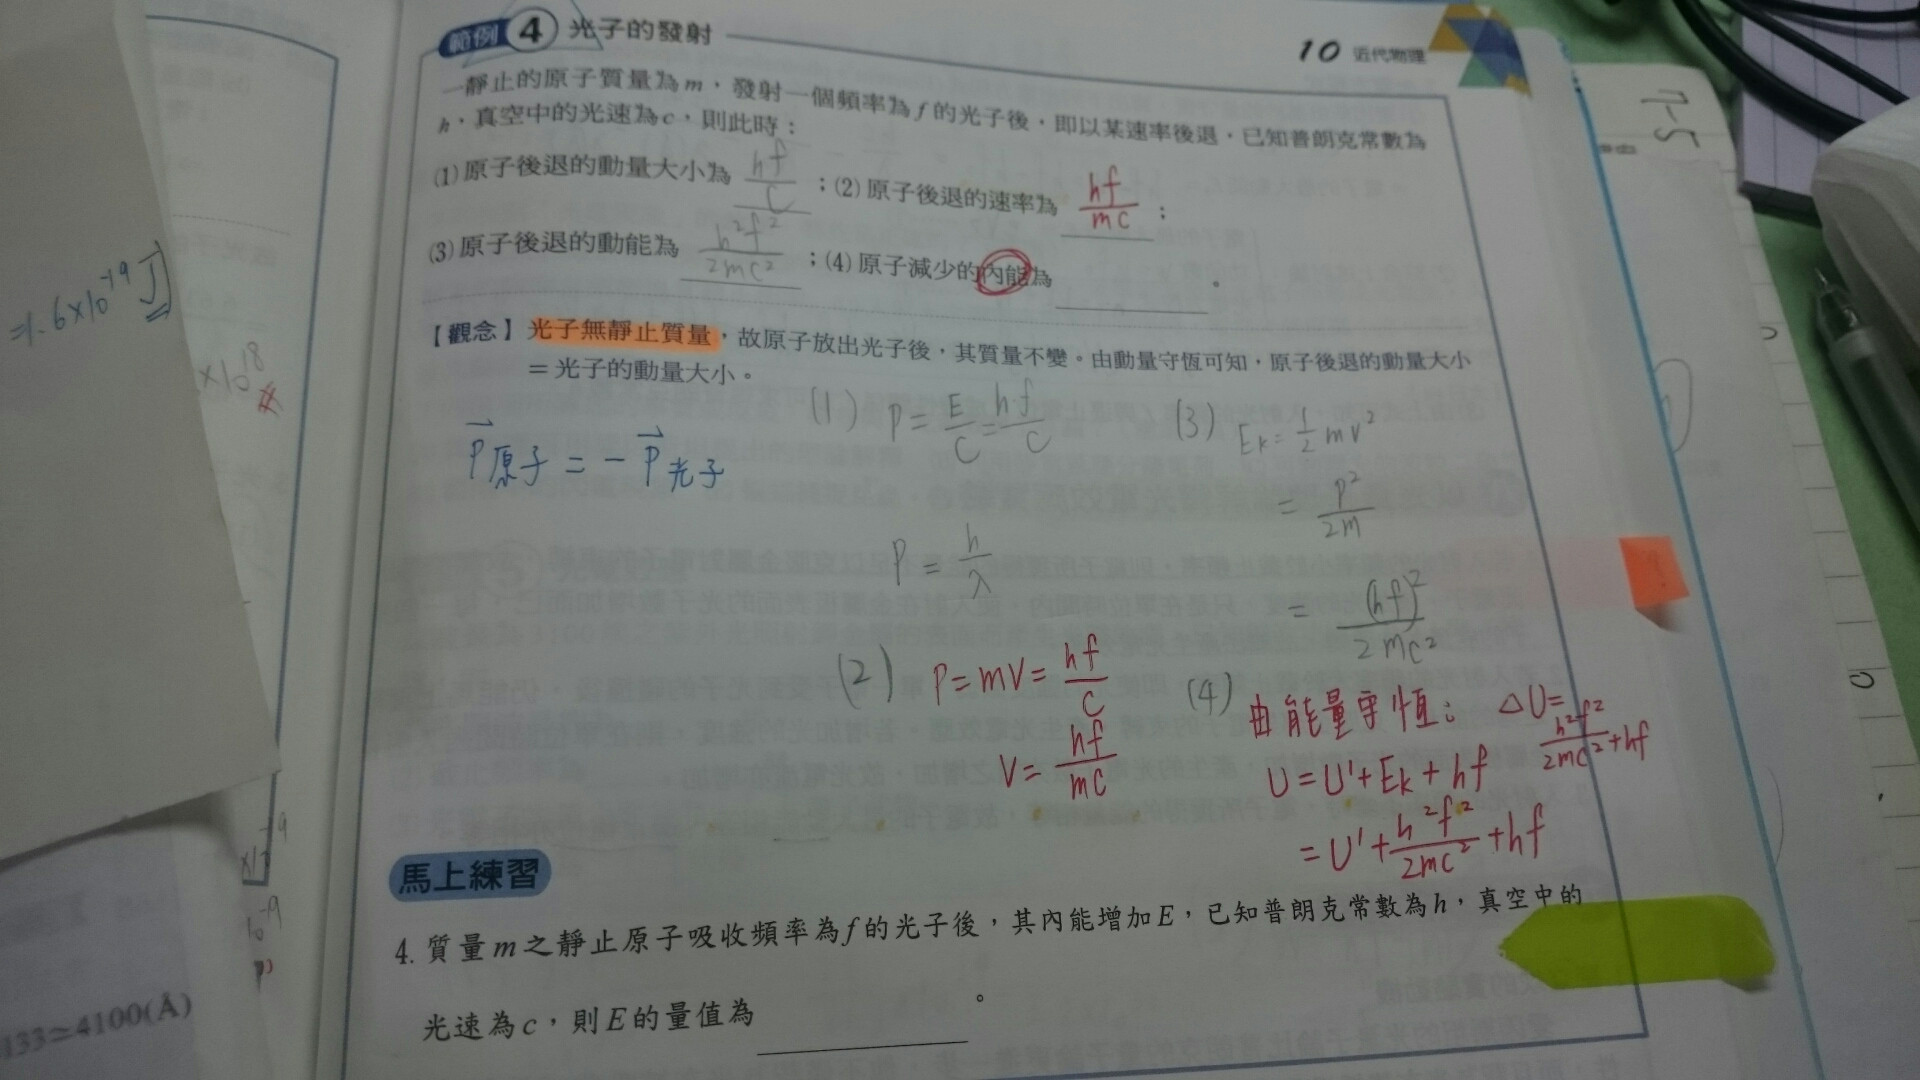 範例 4 光子的發射
10 近代物理
一靜止的原子質量為 m，發射一個頻率為 f 的光子後，即以某速率後退，已知普朗克常數為
h，真空中的光速為 c，則此時：
(1) 原子後退的動量大小為 hf/c ；(2) 原子後退的速率為 hf/mc ；
(3) 原子後退的動能為 h²f²/2mc² ；(4) 原子減少的內能為 。
【觀念】光子無靜止質量，故原子放出光子後，其質量不變。由動量守恆可知，原子後退的動量大小
＝光子的動量大小。
P⃗原子 = -P⃗光子
(1) P = E/C = hf/C
P = h/λ
(2) P = mV = hf/C
V = hf/mc
(3) Ek = 1/2 mv²
= P²/2m
= (hf)²/2mc²
(4) 由能量守恆： ΔU = h²f²/2mc² + hf
U = U' + Ek + hf
= U' + h²f²/2mc² + hf
馬上練習
4. 質量 m 之靜止原子吸收頻率為 f 的光子後，其內能增加 E，已知普朗克常數為 h，真空中的
光速為 c，則 E 的量值為 。
=1.6×10⁻¹⁹ J
×10¹⁸ #
133≃4100(Å)
7-5